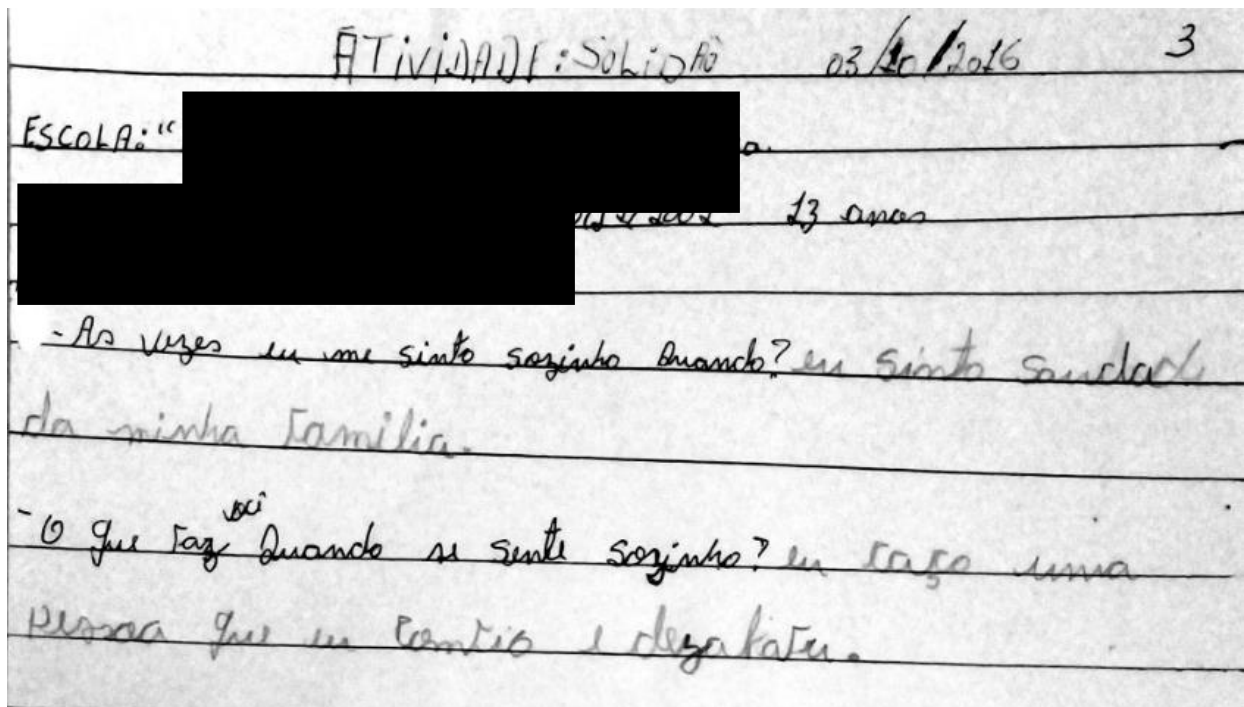 ATIVIDADE: SOLIDÃO 03/10/2016 3
ESCOLA: "
a.
2002 13 anos
- As vezes eu me sinto sozinho Quando? eu sinto saudade
da minha família.
- O que faz você Quando se sente sozinho? eu caço uma
pessoa que eu confio e dezabafu.